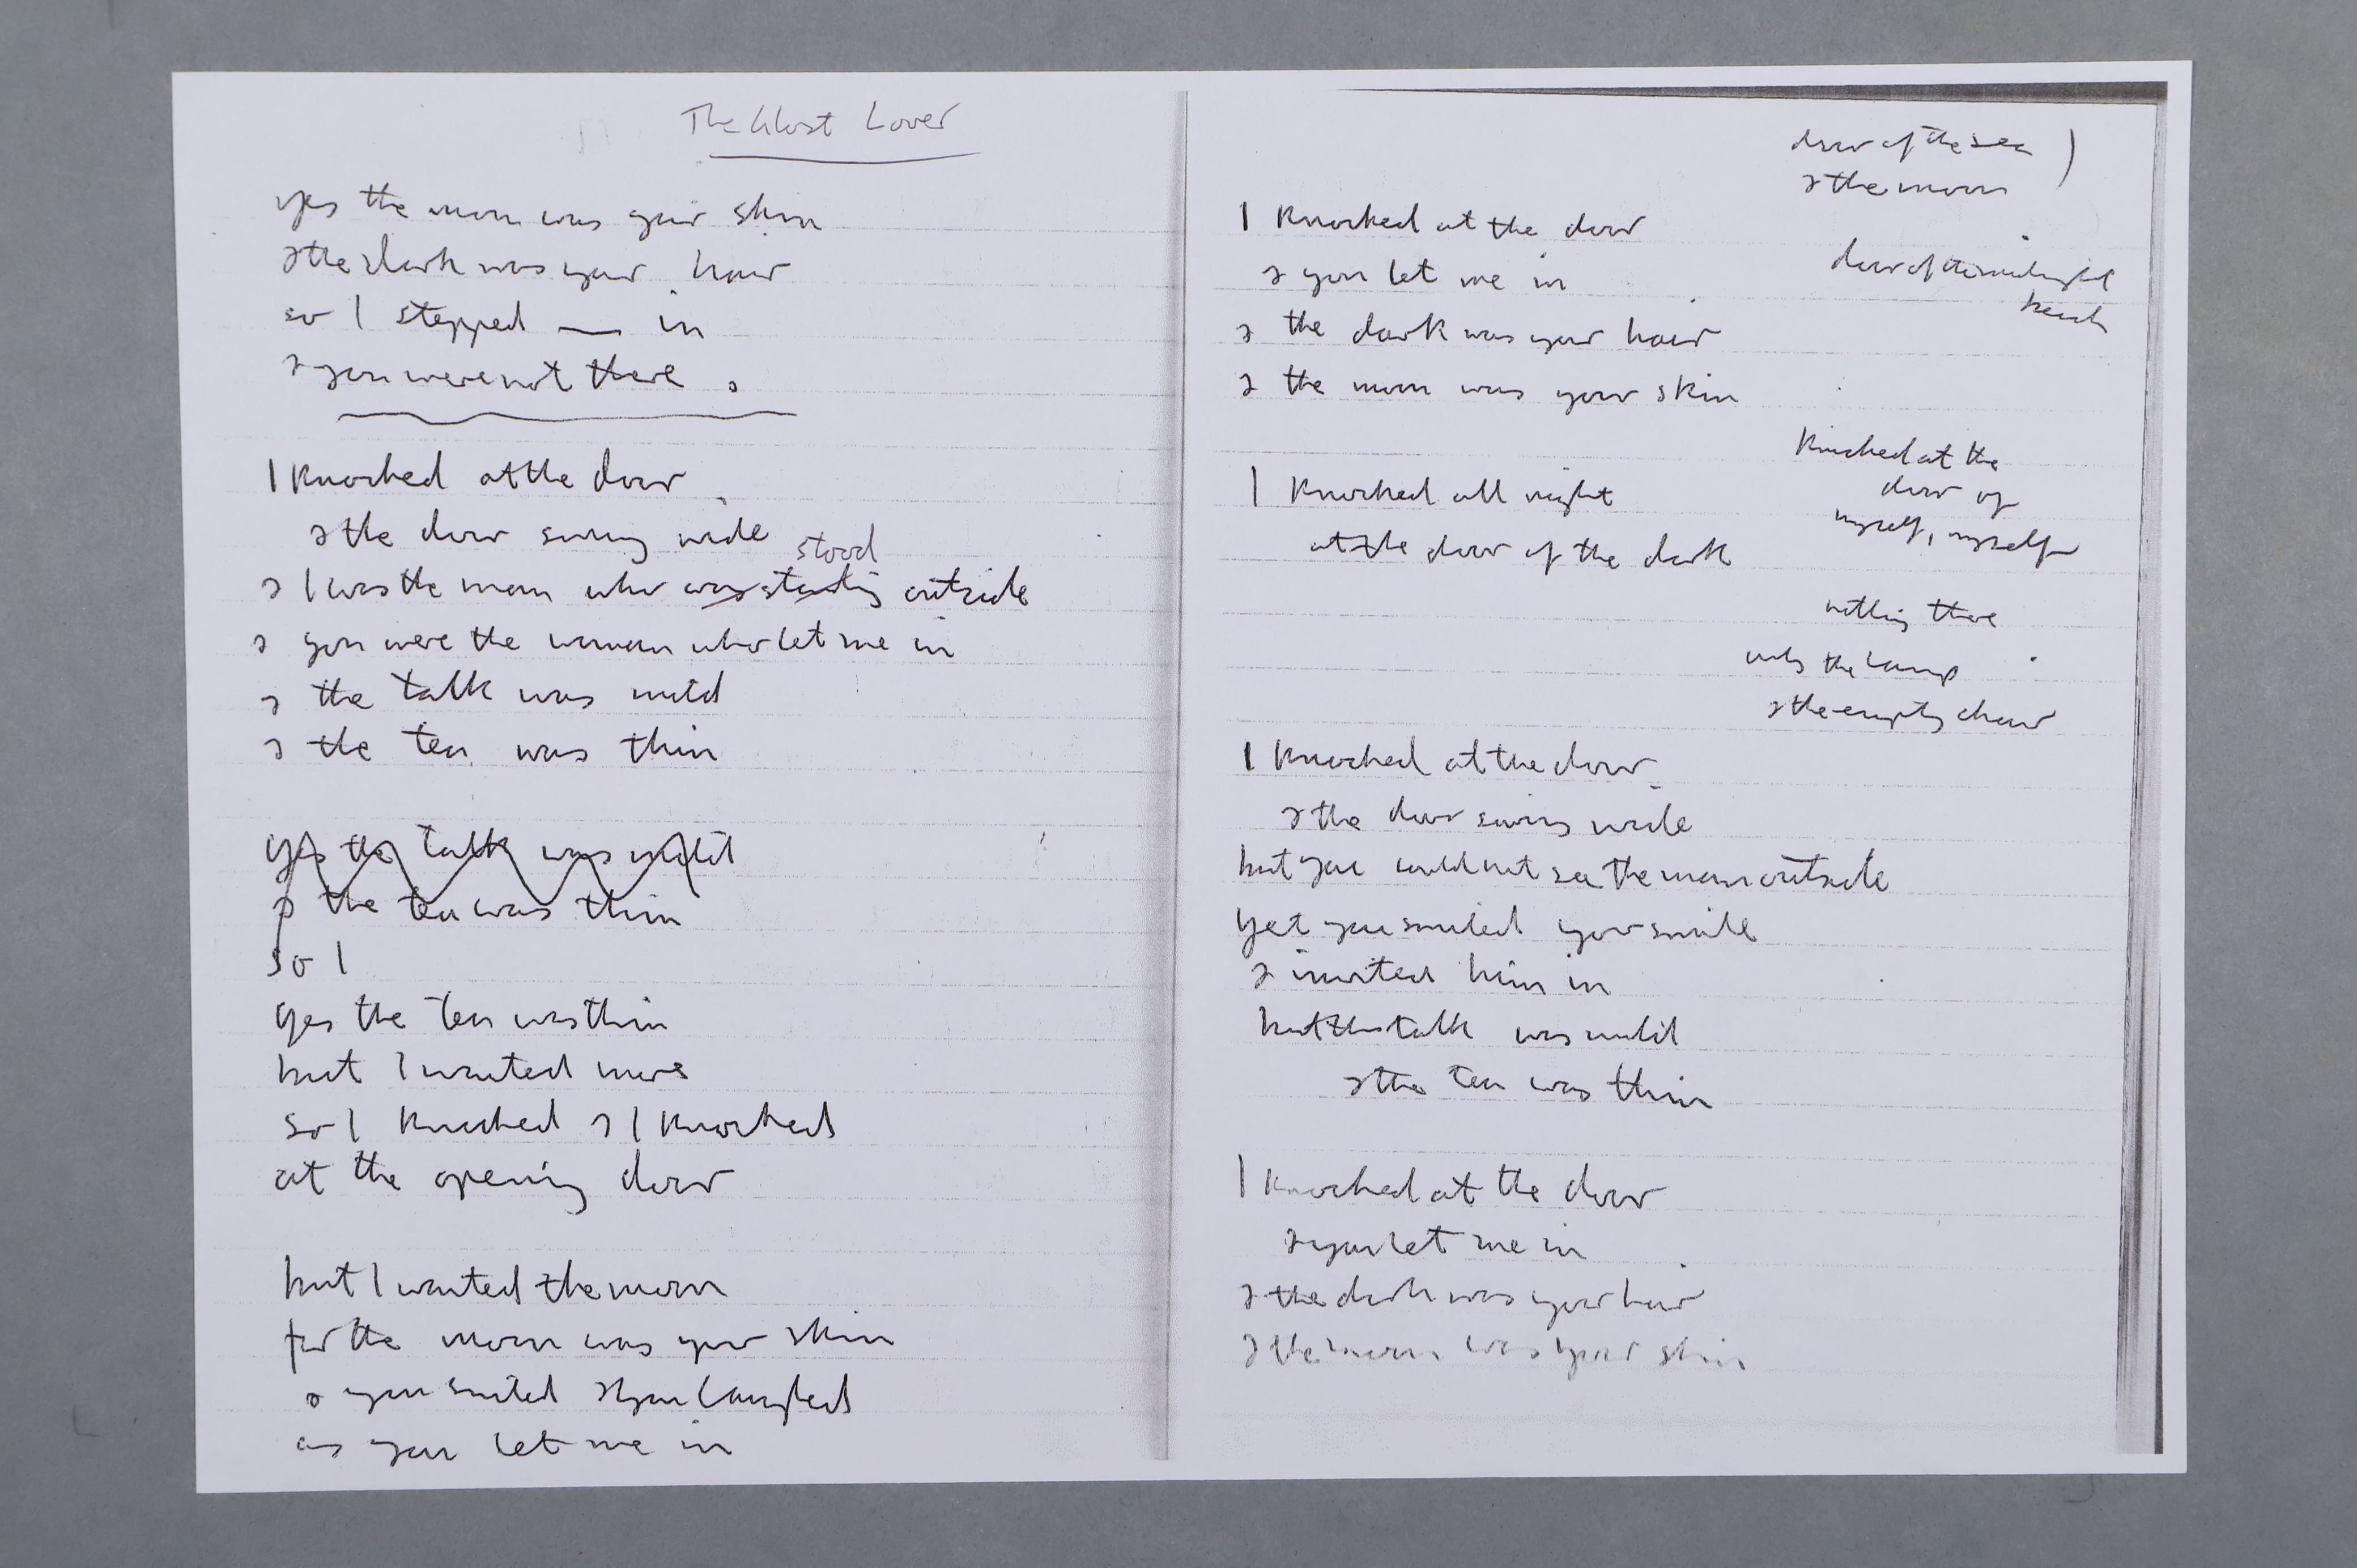 The Ghost Lover
yes the moon was your skin
& the dark was your hair
so I stepped — in
& you were not there.
I knocked at the door
& the door swung wide
stood
& I was the man who was standing outside
& you were the woman who let me in
& the talk was mild
& the tea was thin
yes the talk was mild
& the tea was thin
so I
yes the tea was thin
but I wanted more
so I knocked & I knocked
at the opening door
but I wanted the moon
for the moon was your skin
& you smiled & you laughed
as you let me in
door of the sea )
& the moon
I knocked at the door
& you let me in
door of the midnight
beach
& the dark was your hair
& the moon was your skin
Knocked at the
door of
myself, myself
I knocked all night
at the door of the dark
nothing there
only the lamp
& the empty chair
I knocked at the door
& the door swung wide
but you could not see the man outside
yet you smiled your smile
& invited him in
but the talk was mild
& the tea was thin
I knocked at the door
& you let me in
& the dark was your hair
& the moon was your skin